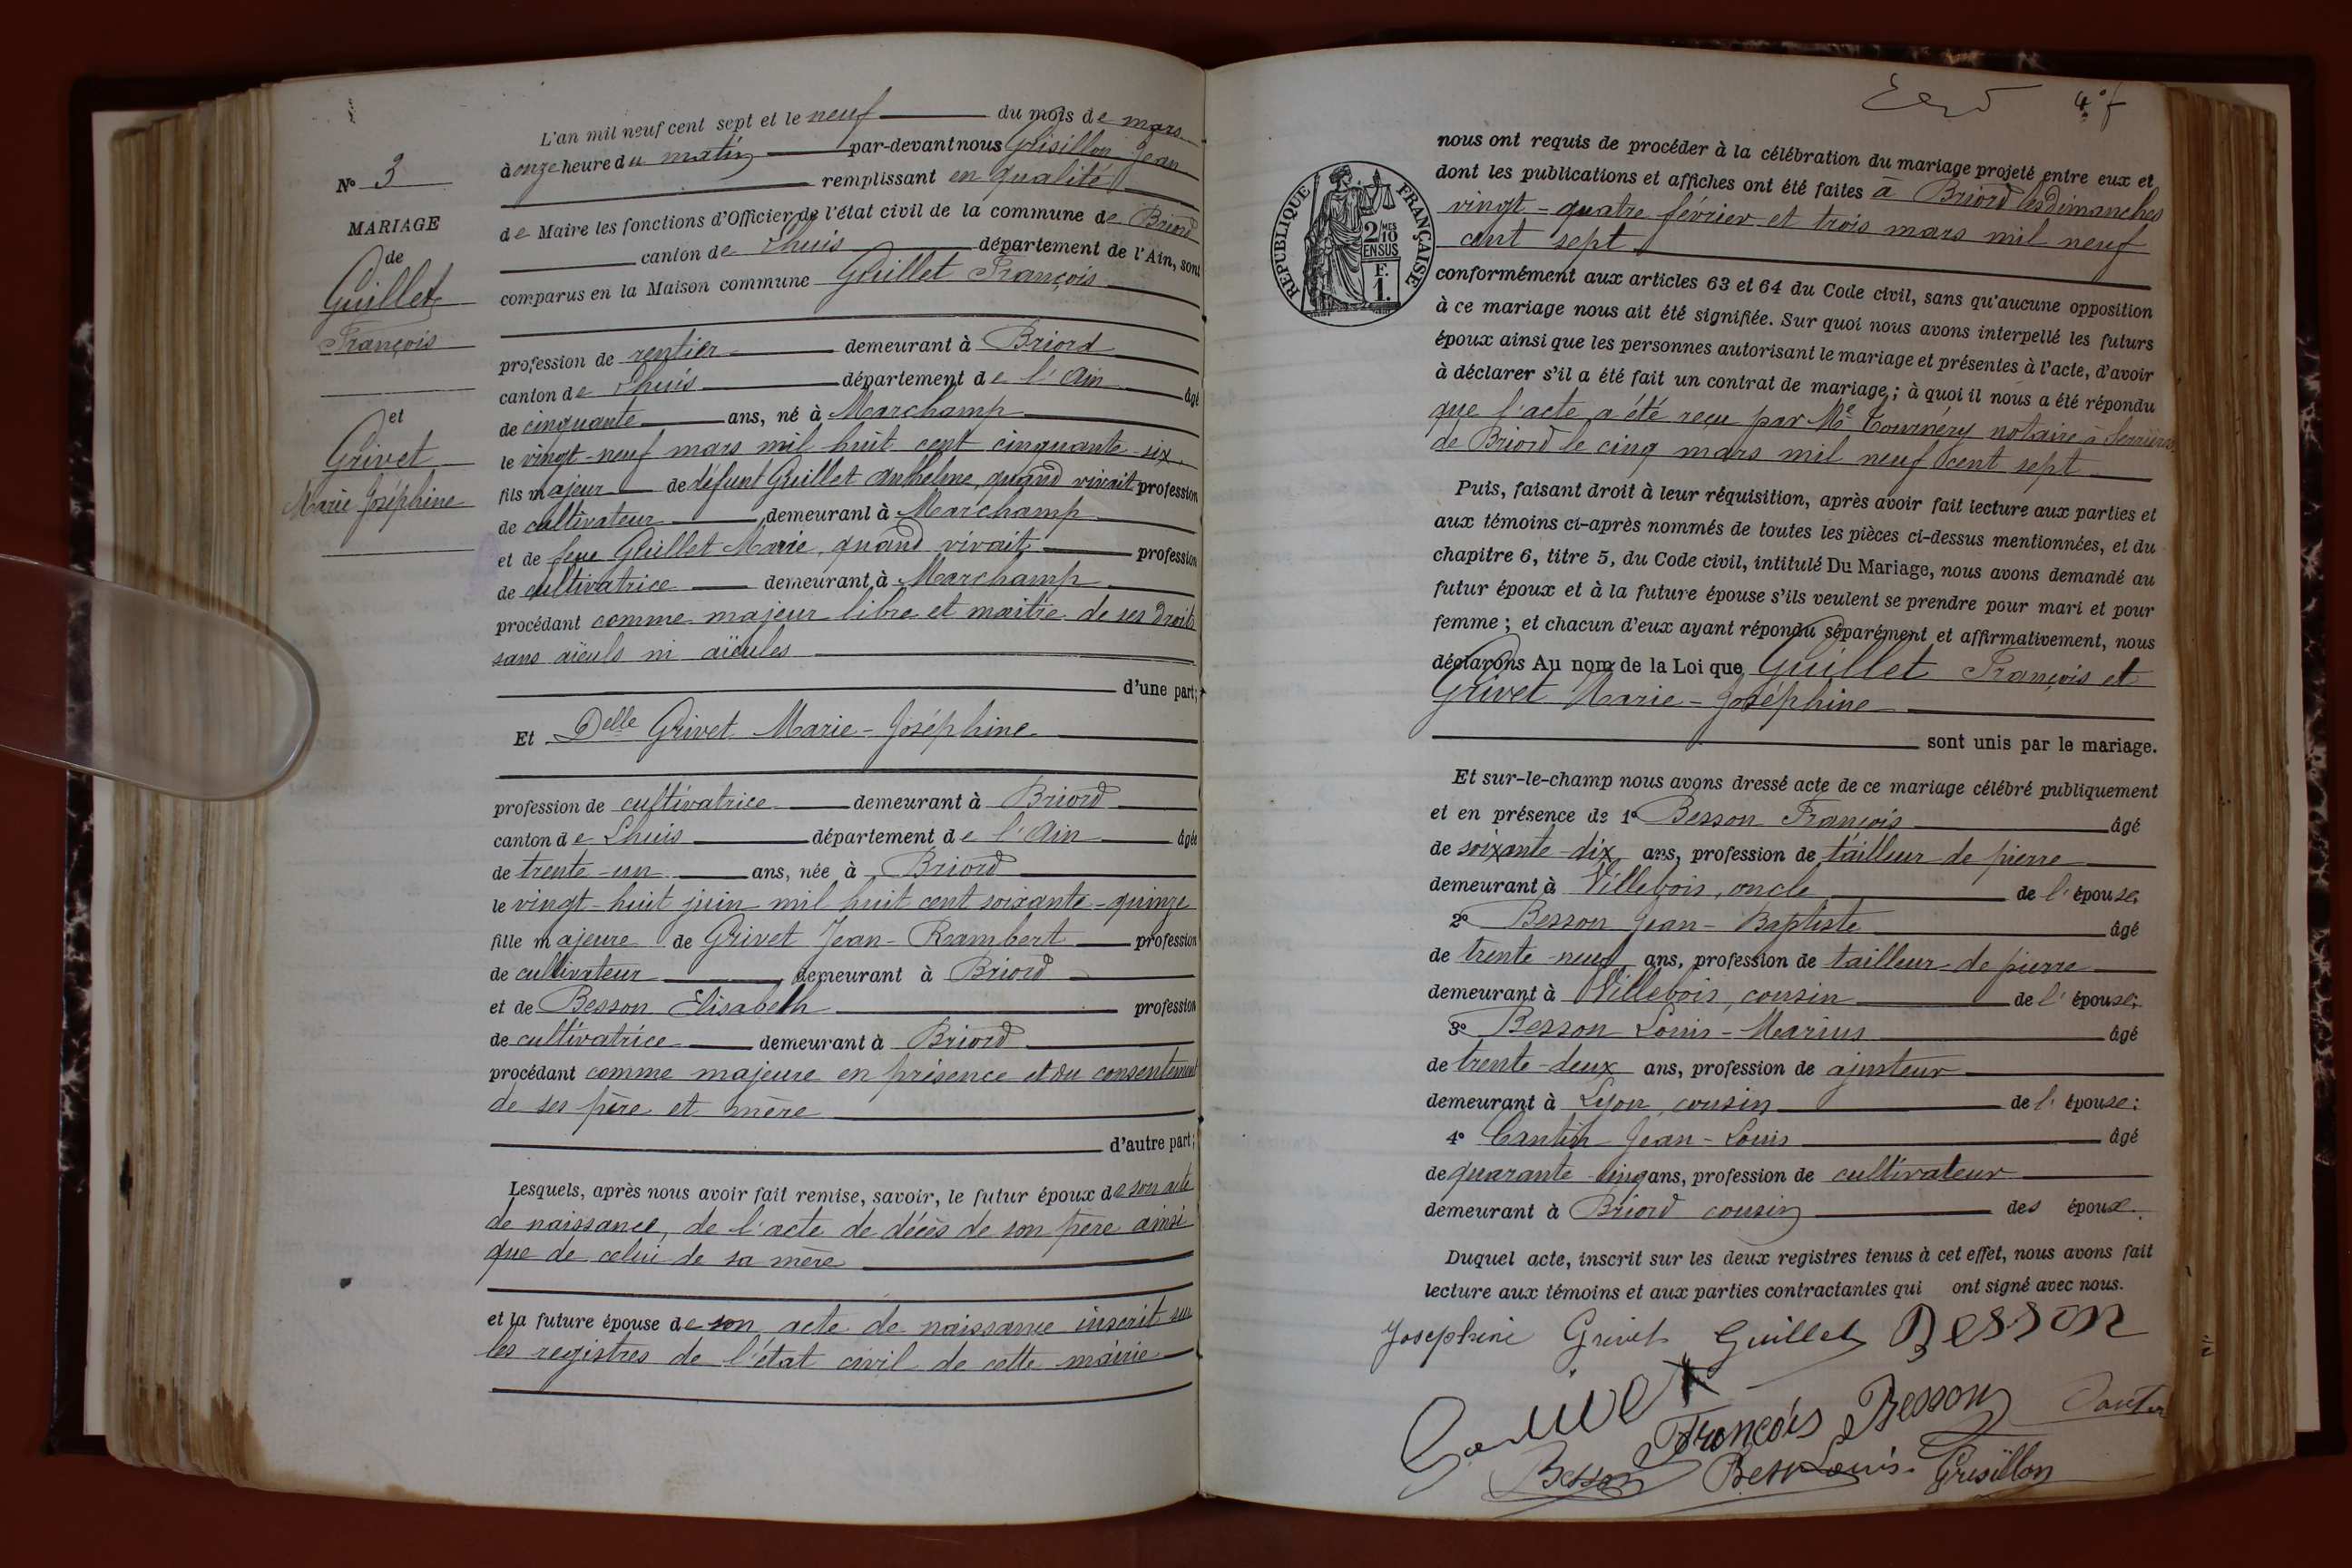 L'an mil neuf cent sept et le neuf du mois de mars
à onze heure du matin par-devant nous Grisillon Jean
remplissant en qualité
de Maire les fonctions d'Officier de l'état civil de la commune de Briord
canton de Lhuis département de l'Ain, sont
comparus en la Maison commune Guillet François
profession de rentier demeurant à Briord
canton de Lhuis département de l'Ain âgé
de cinquante ans, né à Marchamp
le vingt-neuf mars mil huit cent cinquante-six
fils majeur de défunt Guillet Anthelme, quand vivait profession
de cultivateur demeurant à Marchamp
et de feue Guillet Marie, quand vivait profession
de cultivatrice demeurant à Marchamp
procédant comme majeur libre et maitre de ses droits
sans aïeuls ni aïeules
d'une part;
Et Delle Grivet Marie-Joséphine
profession de cultivatrice demeurant à Briord
canton de Lhuis département de l'Ain âgée
de trente-un ans, née à Briord
le vingt-huit juin mil huit cent soixante-quinze
fille majeure de Grivet Jean-Rambert profession
de cultivateur demeurant à Briord
et de Besson Elisabeth profession
de cultivatrice demeurant à Briord
procédant comme majeure en présence et du consentement
de ses père et mère
d'autre part;
Lesquels, après nous avoir fait remise, savoir, le futur époux de son acte
de naissance, de l'acte de décès de son père ainsi
que de celui de sa mère
et la future épouse de son acte de naissance inscrit sur
les registres de l'état civil de cette mairie
N° 3
MARIAGE
de
Guillet
François
et
Grivet
Marie Joséphine
4
nous ont requis de procéder à la célébration du mariage projeté entre eux et
dont les publications et affiches ont été faites à Briord les dimanches
vingt-quatre février et trois mars mil neuf
cent sept
conformément aux articles 63 et 64 du Code civil, sans qu'aucune opposition
à ce mariage nous ait été signifiée. Sur quoi nous avons interpellé les futurs
époux ainsi que les personnes autorisant le mariage et présentes à l'acte, d'avoir
à déclarer s'il a été fait un contrat de mariage; à quoi il nous a été répondu
que l'acte a été reçu par Me Tournéry notaire à Serrières
de Briord le cinq mars mil neuf cent sept
Puis, faisant droit à leur réquisition, après avoir fait lecture aux parties et
aux témoins ci-après nommés de toutes les pièces ci-dessus mentionnées, et du
chapitre 6, titre 5, du Code civil, intitulé Du Mariage, nous avons demandé au
futur époux et à la future épouse s'ils veulent se prendre pour mari et pour
femme ; et chacun d'eux ayant répondu séparément et affirmativement, nous
déclarons Au nom de la Loi que Guillet François et
Grivet Marie-Joséphine
sont unis par le mariage.
Et sur-le-champ nous avons dressé acte de ce mariage célébré publiquement
et en présence de 1° Besson François âgé
de soixante-dix ans, profession de tailleur de pierre
demeurant à Villebois, oncle de l'épouse;
2° Besson Jean-Baptiste âgé
de trente-neuf ans, profession de tailleur de pierre
demeurant à Villebois, cousin de l'épouse;
3° Besson Louis-Marius âgé
de trente-deux ans, profession de ajusteur
demeurant à Lyon, cousin de l'épouse;
4° Cantin Jean-Louis âgé
de quarante-cinq ans, profession de cultivateur
demeurant à Briord cousin des époux.
Duquel acte, inscrit sur les deux registres tenus à cet effet, nous avons fait
lecture aux témoins et aux parties contractantes qui ont signé avec nous.
Josephine Grivet Guillet Besson
Grivet
François Besson
Besson Louis Grisillon
RÉPUBLIQUE FRANÇAISE
2 MES
10
EN SUS
F.
1.